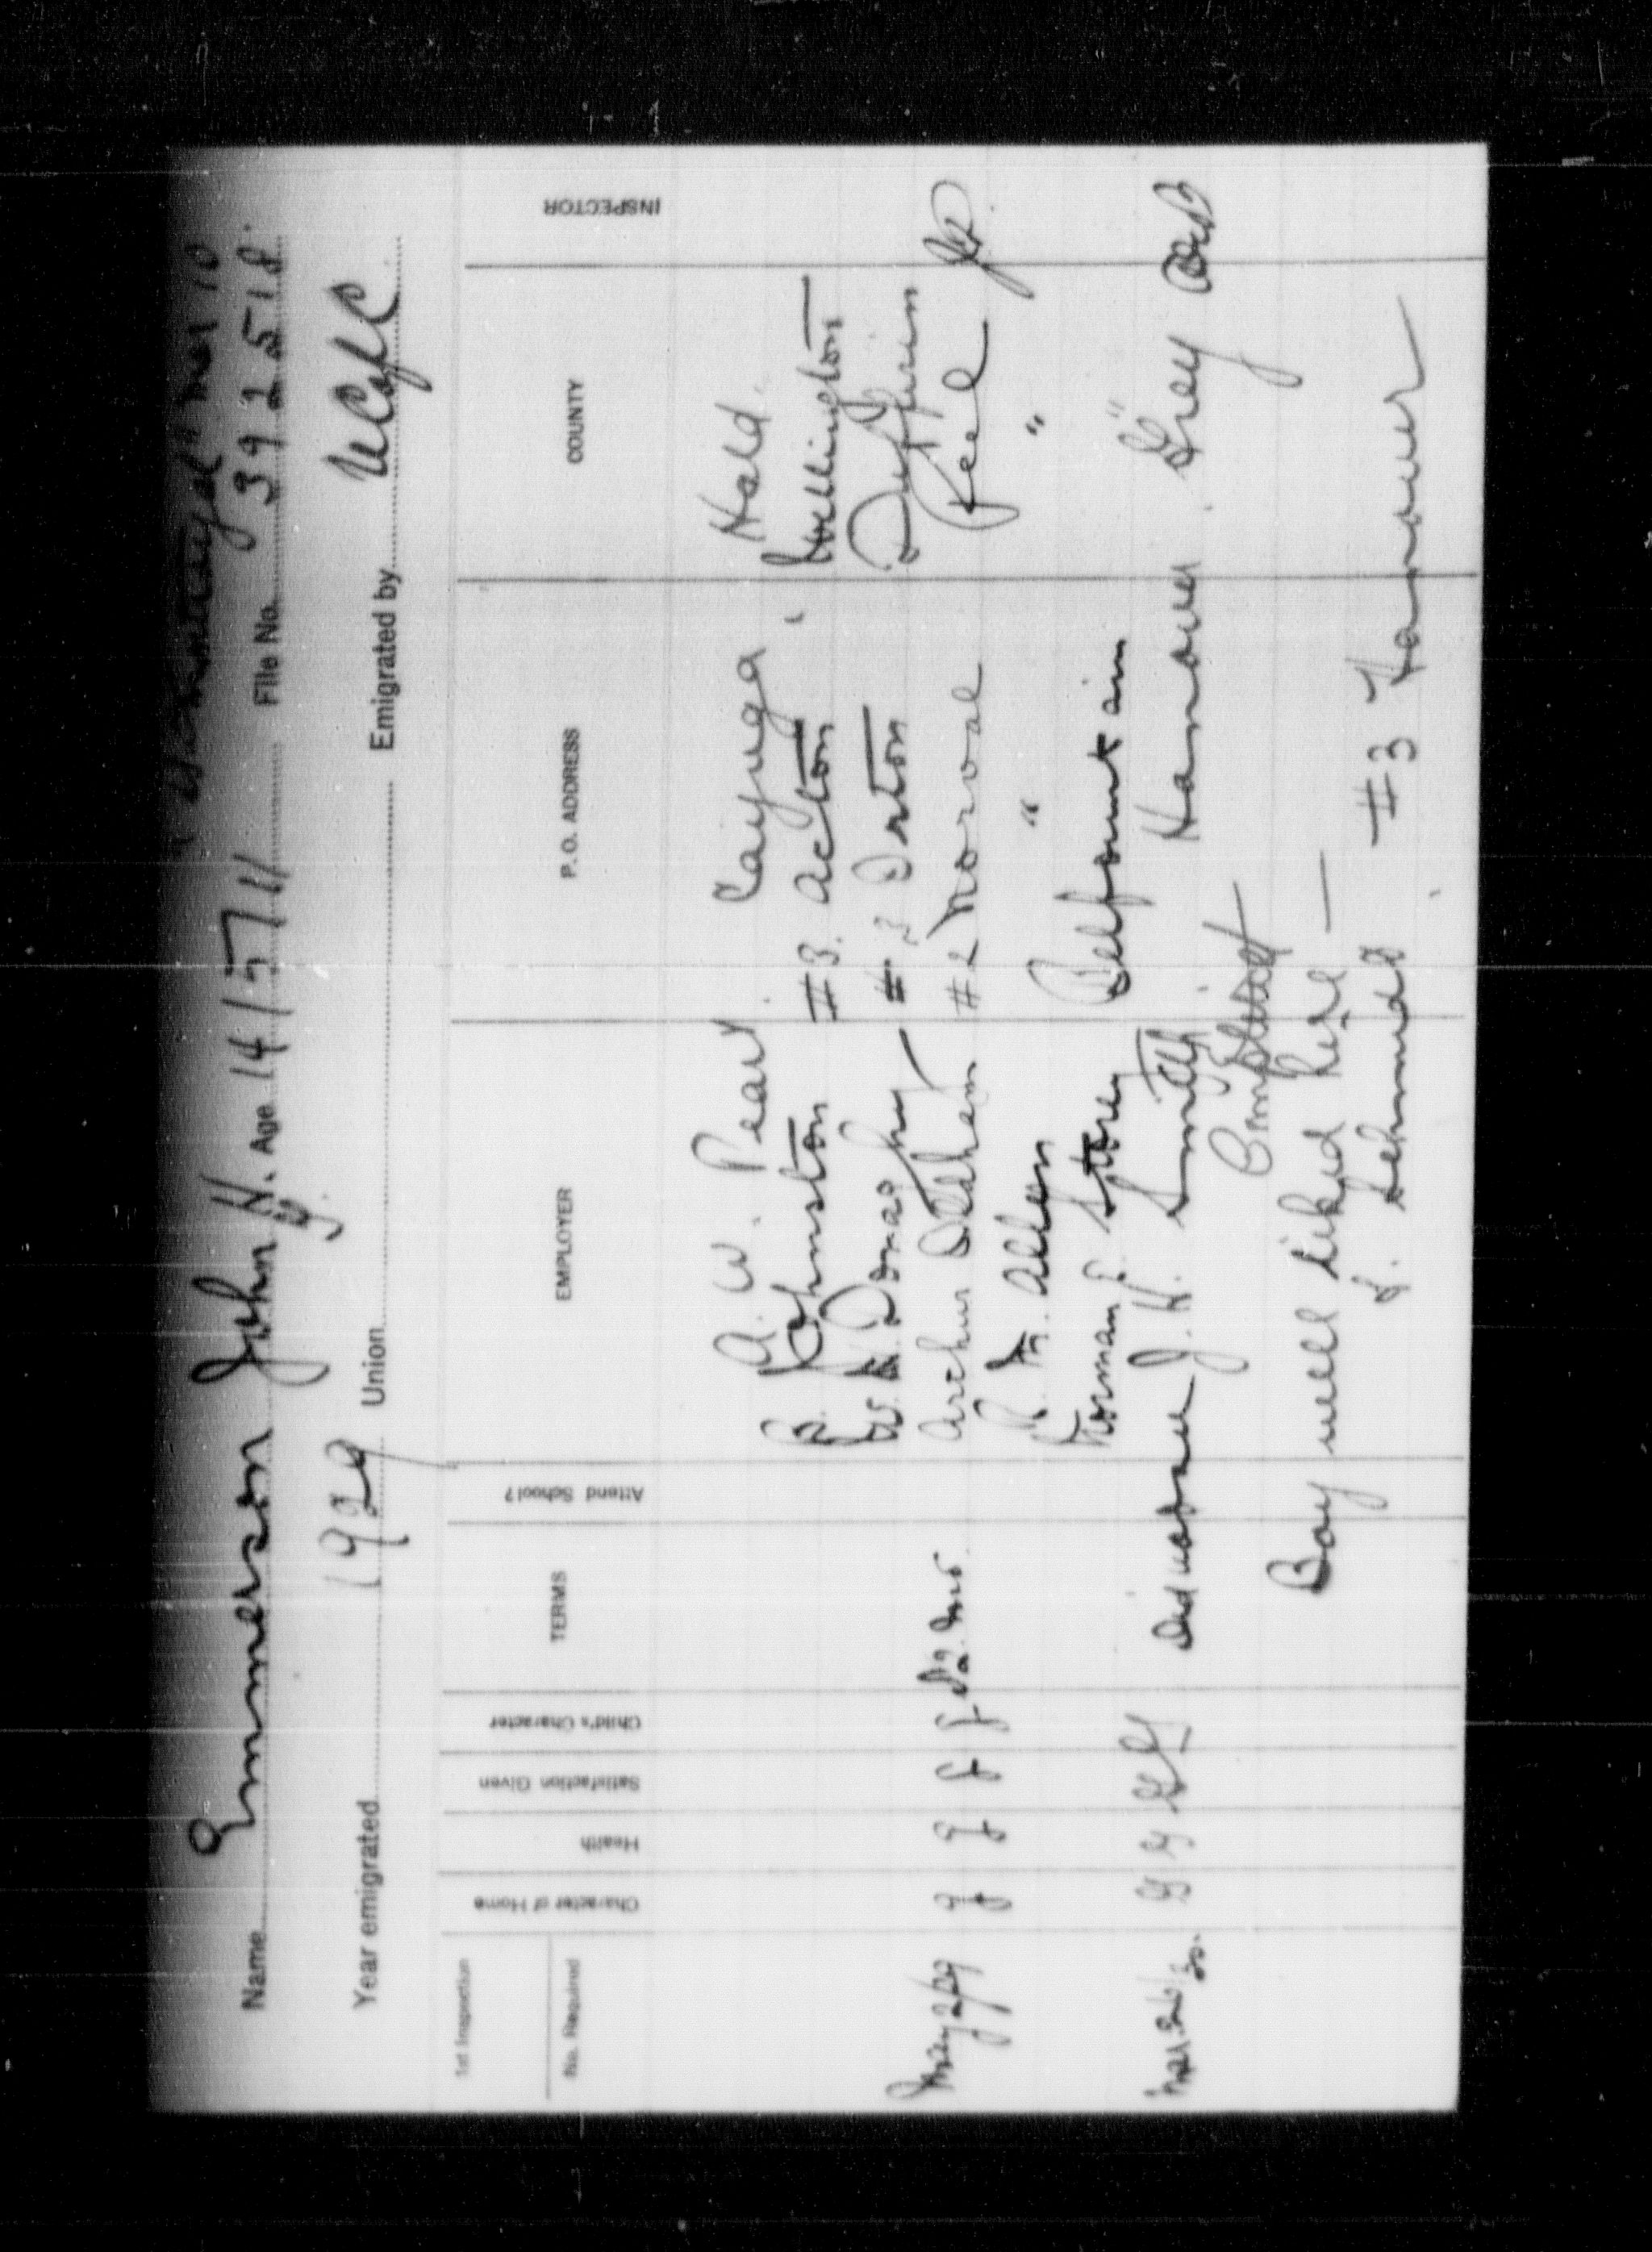 Mar 10
Name Emmerson John H. Age 14/5/11 File No. 392518
Year emigrated 1929 Union Emigrated by
1st Inspection
No. Required
Character of Home
Health
Satisfaction Given
Child's Character
TERMS
Attend School?
EMPLOYER
P. O. ADDRESS
COUNTY
INSPECTOR
A. W. Peart Cayuga Hald.
R. Johnston #3. Acton Wellington
#3 Orton Dufferin
May 2/29 g g g g Arthur #2 Norval Peel
R. M. Allen " "
Norman E. Storey Belfountain "
Mar 26/30. g g J. H. Smith Hanover Grey
Boy well liked here —
Schmidt #3 Hanover